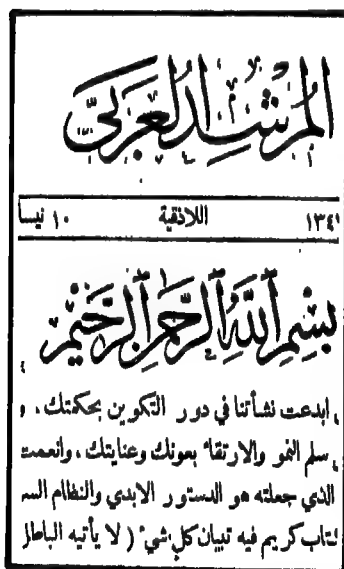 المرشد العربي
١٣٤ اللاذقية ١٠ نيسا
بسم الله الرحمن الرحيم
ابدعت نشأتنا في دور التكوين بحكمتك، و
سلم النمو والارتقاء بعونك وعنايتك، وانعمت
الذي جعلته هو الدستور الابدي والنظام الس
كتاب كريم فيه تبيان كل شيء ( لا يأتيه الباطل